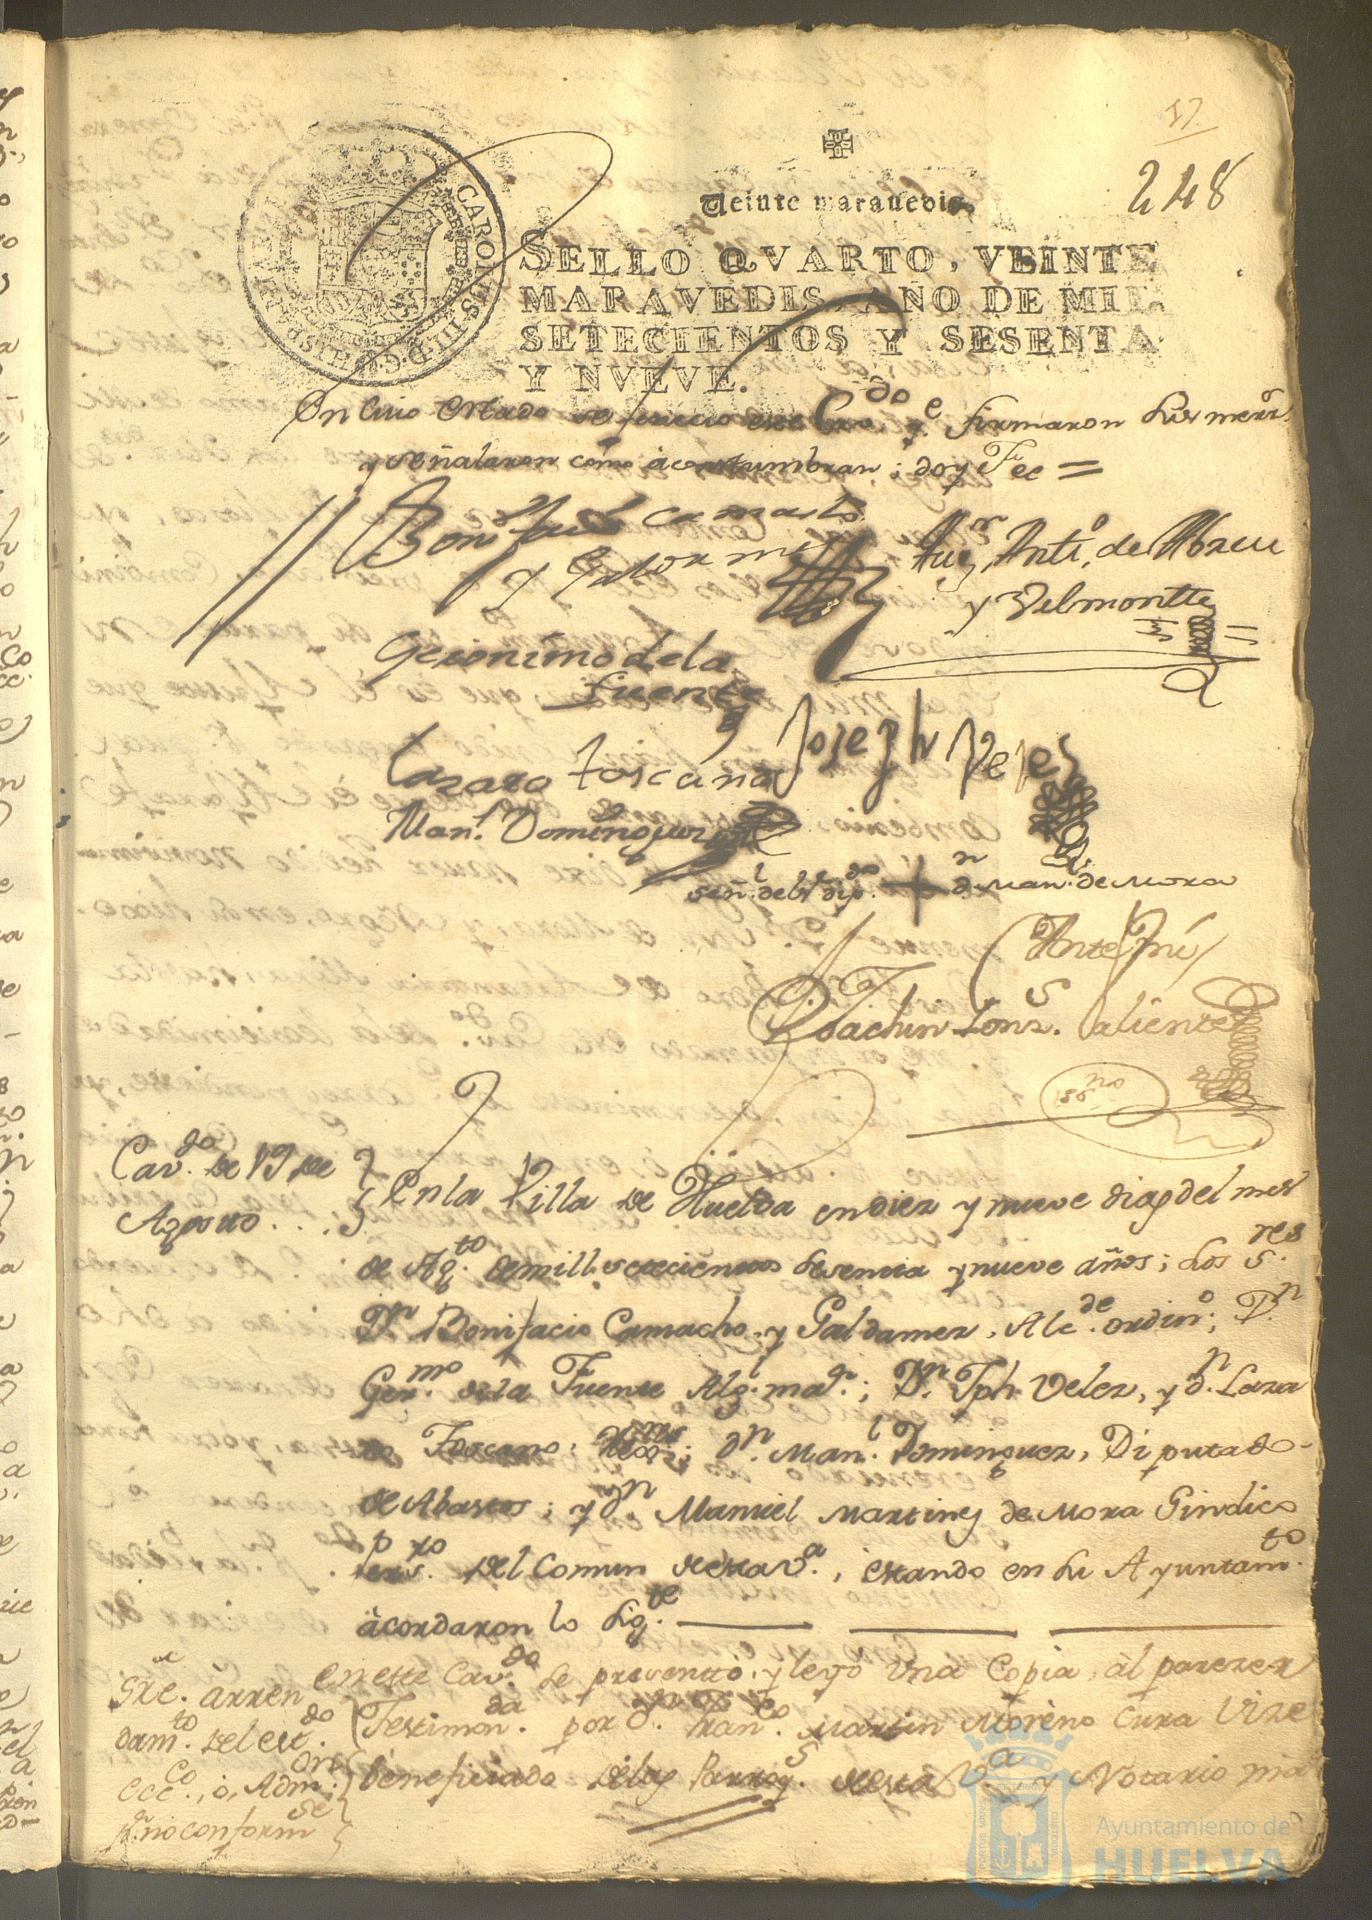 17
248
Veinte maravedis.
SELLO QVARTO, VEINTE
MARAVEDIS, AÑO DE MIL
SETECIENTOS Y SESENTA
Y NVEVE.
CAROLUS III D.G. HISPANIAR
En cuio estado se fenecio este Cavdo qe firmaron sus mersz
y señalaron como acostumbran; doy Fee =
Bonifacio Camacho
y Galdamez
Antº. de Abreu
y Velmontte
Geronimo de la
Fuente
Lazaro toscano
Joseph Velez
Manl. Dominguez
señl. del Sr. dipdo + dn Man. de Mora
Ante Mi
Joachin Valiente
ssno
Cavdo. de 19 de
Agosto . . .
En la Villa de Huelba en diez y nueve dias del mes
de Agto. de mill setecientos sesenta y nueve años; los Sres.
Dn. Bonifacio Camacho, y Galdamez, Alcde. ordino; Dn.
Germo. de la Fuente Alg. mar.; Dn. Jph. Velez, y dn. Laza
ro Toscano; Rexres; dn. Manl. Dominguez, Diputado
de Abastos; y dn Manuel Martines de Mora Sindico
perso. del Comun de esta va., estando en su Ayuntamto.
acordaron lo sigte.
Sre. arren
damto. del esdo.
ecco., o, Admon.
pr. no conformse
en este Cavdo. se presentto, y leyo Una Copia, al parezer
Testimonda. por dn. Franco. Martin Moreno Cura Vize
beneficiado de las Parroqs. de esta Va. y Notario ma
Ayuntamiento de
HUELVA